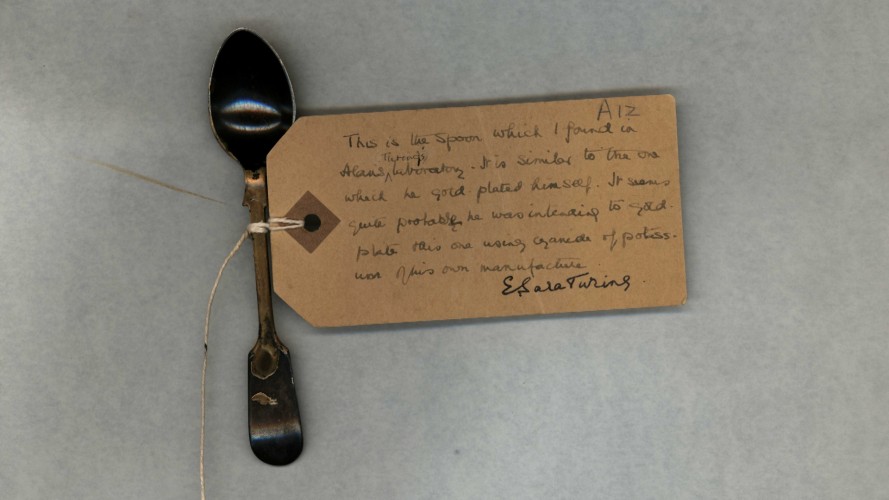 A12
This is the spoon which I found in
Alan Turing's laboratory. It is similar to the one
which he gold plated himself. It seems
quite probable he was intending to gold-
plate this one using cyanide of potass-
ium of his own manufacture.
E. Sara Turing.